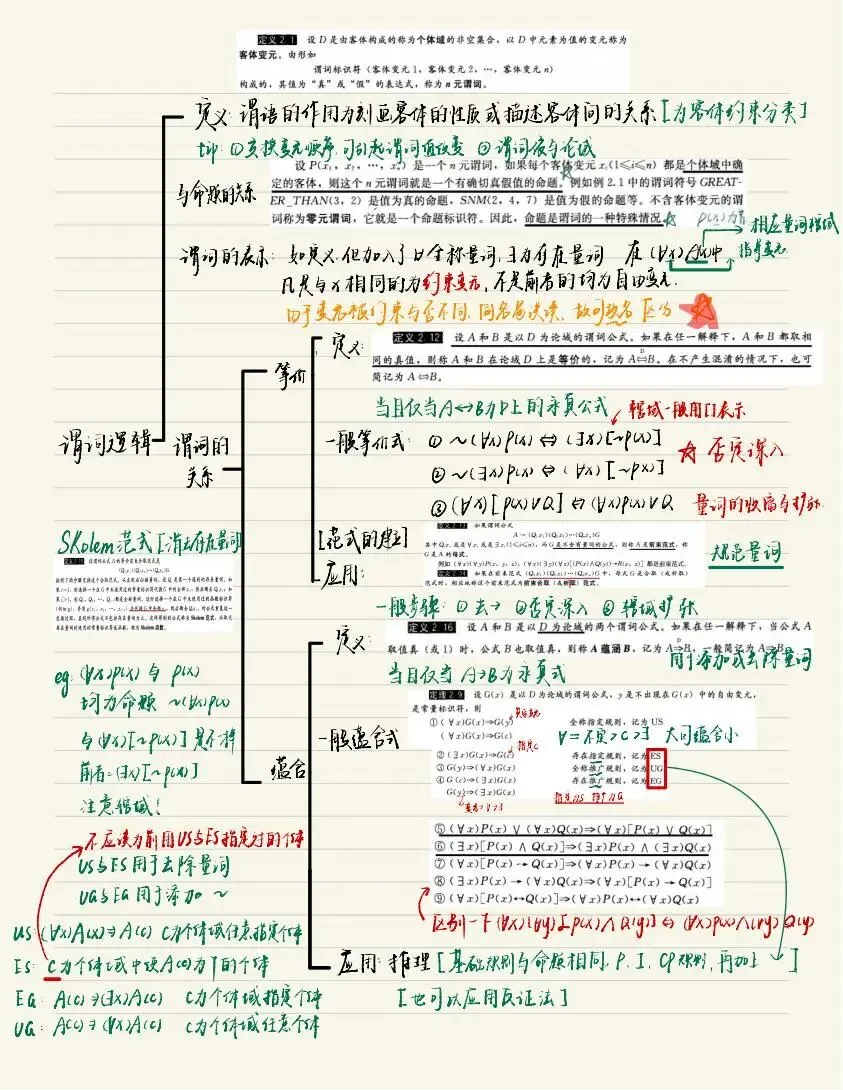 定义 2.1 设 D 是由客体构成的称为个体域的非空集合，以 D 中元素为值的变元称为
客体变元。由形如
谓词标识符（客体变元 1，客体变元 2，…，客体变元 n）
构成的，其值为“真”或“假”的表达式，称为 n 元谓词。
定义: 谓语的作用为刻画客体的性质或描述客体间的关系 [为客体约束分类]
①交换变元顺序, 可引起谓词值改变 ②谓词 与论域
设 P(x₁, x₂, …, xₙ) 是一个 n 元谓词，如果每个客体变元 xᵢ(1≤i≤n) 都是个体域中确
与命题的关系
定的客体，则这个 n 元谓词就是一个有确切真假值的命题。例如例 2.1 中的谓词符号 GREAT-
ER_THAN(3, 2) 是值为真的命题，SNM(2, 4, 7) 是值为假的命题等。不含客体变元的谓
词称为零元谓词，它就是一个命题标识符。因此，命题是谓词的一种特殊情况
相应量词辖域
谓词的表示: 如定义, 但加入了∀全称量词, ∃为存在量词 在 (∀x) 中
指导变元
凡是与x相同的为约束变元, 不是前者的均为自由变元.
由于变元被约束与否不同, 同名易误读, 故可改名区分
定义 2.12 设 A 和 B 是以 D 为论域的谓词公式。如果在任一解释下，A 和 B 都取相
定义:
同的真值，则称 A 和 B 在论域 D 上是等价的，记为 A⇔B。在不产生混淆的情况下，也可
简记为 A⇔B。
等价
当且仅当A↔B为D上的永真公式
辖域一般用[]表示
谓词逻辑
谓词的
关系
一般等价式: ① ~(∀x)P(x) ⇔ (∃x)[~P(x)]
否定深入
② ~(∃x)P(x) ⇔ (∀x)[~P(x)]
③ (∀x)[P(x)∨Q] ⇔ (∀x)P(x)∨Q 量词的收缩与扩张
SKolem范式 [消去存在量词]
[范式的建立]
应用:
如果谓词公式
A=(Q₁x₁)(Q₂x₂)…(Qₙxₙ)G
一般步骤: ①去→ ②否定深入 ③辖域扩张
定义 2.16 设 A 和 B 是以 D 为论域的两个谓词公式。如果在任一解释下，当公式 A
定义:
取值真（或 1）时，公式 B 也取值真，则称 A 蕴涵 B，记为 A⇒B，一般简记为 A⇒B。
用于添加或去除量词
当且仅当 A→B为永真式
定理 2.9 设 G(x) 是以 D 为论域的谓词公式，y 是不出现在 G(x) 中的自由变元，
是常量标识符，则
一般蕴含式
①(∀x)G(x)⇒G(y) 全称指定规则，记为 US
(∀x)G(x)⇒G(c)
大可蕴含小
②(∃x)G(x)⇒G(c) 存在指定规则，记为 ES
指定c
③G(y)⇒(∀x)G(x) 全称推广规则，记为 UG
④G(c)⇒(∃x)G(x) 存在推广规则，记为 EG
G(y)⇒(∃x)G(x)
指定为S 推广为G
⑤(∀x)P(x)∨(∀x)Q(x)⇒(∀x)[P(x)∨Q(x)]
⑥(∃x)[P(x)∧Q(x)]⇒(∃x)P(x)∧(∃x)Q(x)
⑦(∀x)[P(x)→Q(x)]⇒(∀x)P(x)→(∀x)Q(x)
⑧(∃x)P(x)→(∀x)Q(x)⇒(∀x)[P(x)→Q(x)]
⑨(∀x)[P(x)↔Q(x)]⇒(∀x)P(x)↔(∀x)Q(x)
区别一下 (∀x)(∀y)[P(x)∧Q(y)] ⇔ (∀x)P(x)∧(∀y)Q(y)
蕴含
eg: (∀x)P(x) 与 P(x)
均为命题 ~(∀x)P(x)
与(∀x)[~P(x)]是不一样
前者=(∃x)[~P(x)]
注意辖域!
不应该为前用US与ES指定过的个体
US与ES用于去除量词
UG与EG用于添加 ~
US: (∀x)A(x)⇒A(c) C为个体域任意指定个体
ES: C为个体域中使A(c)为T的个体
EG: A(c)⇒(∃x)A(x) C为个体域指定个体
UG: A(c)⇒(∀x)A(x) C为个体域任意个体
应用: 推理 [基础规则与命题相同, P, I, CP规则, 再加上 ]
[也可以应用反证法]